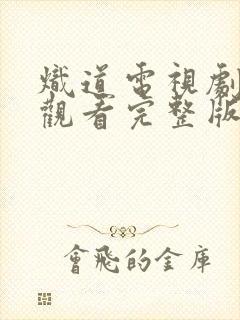 熾道電視劇
觀看完整版
會飛的金庫